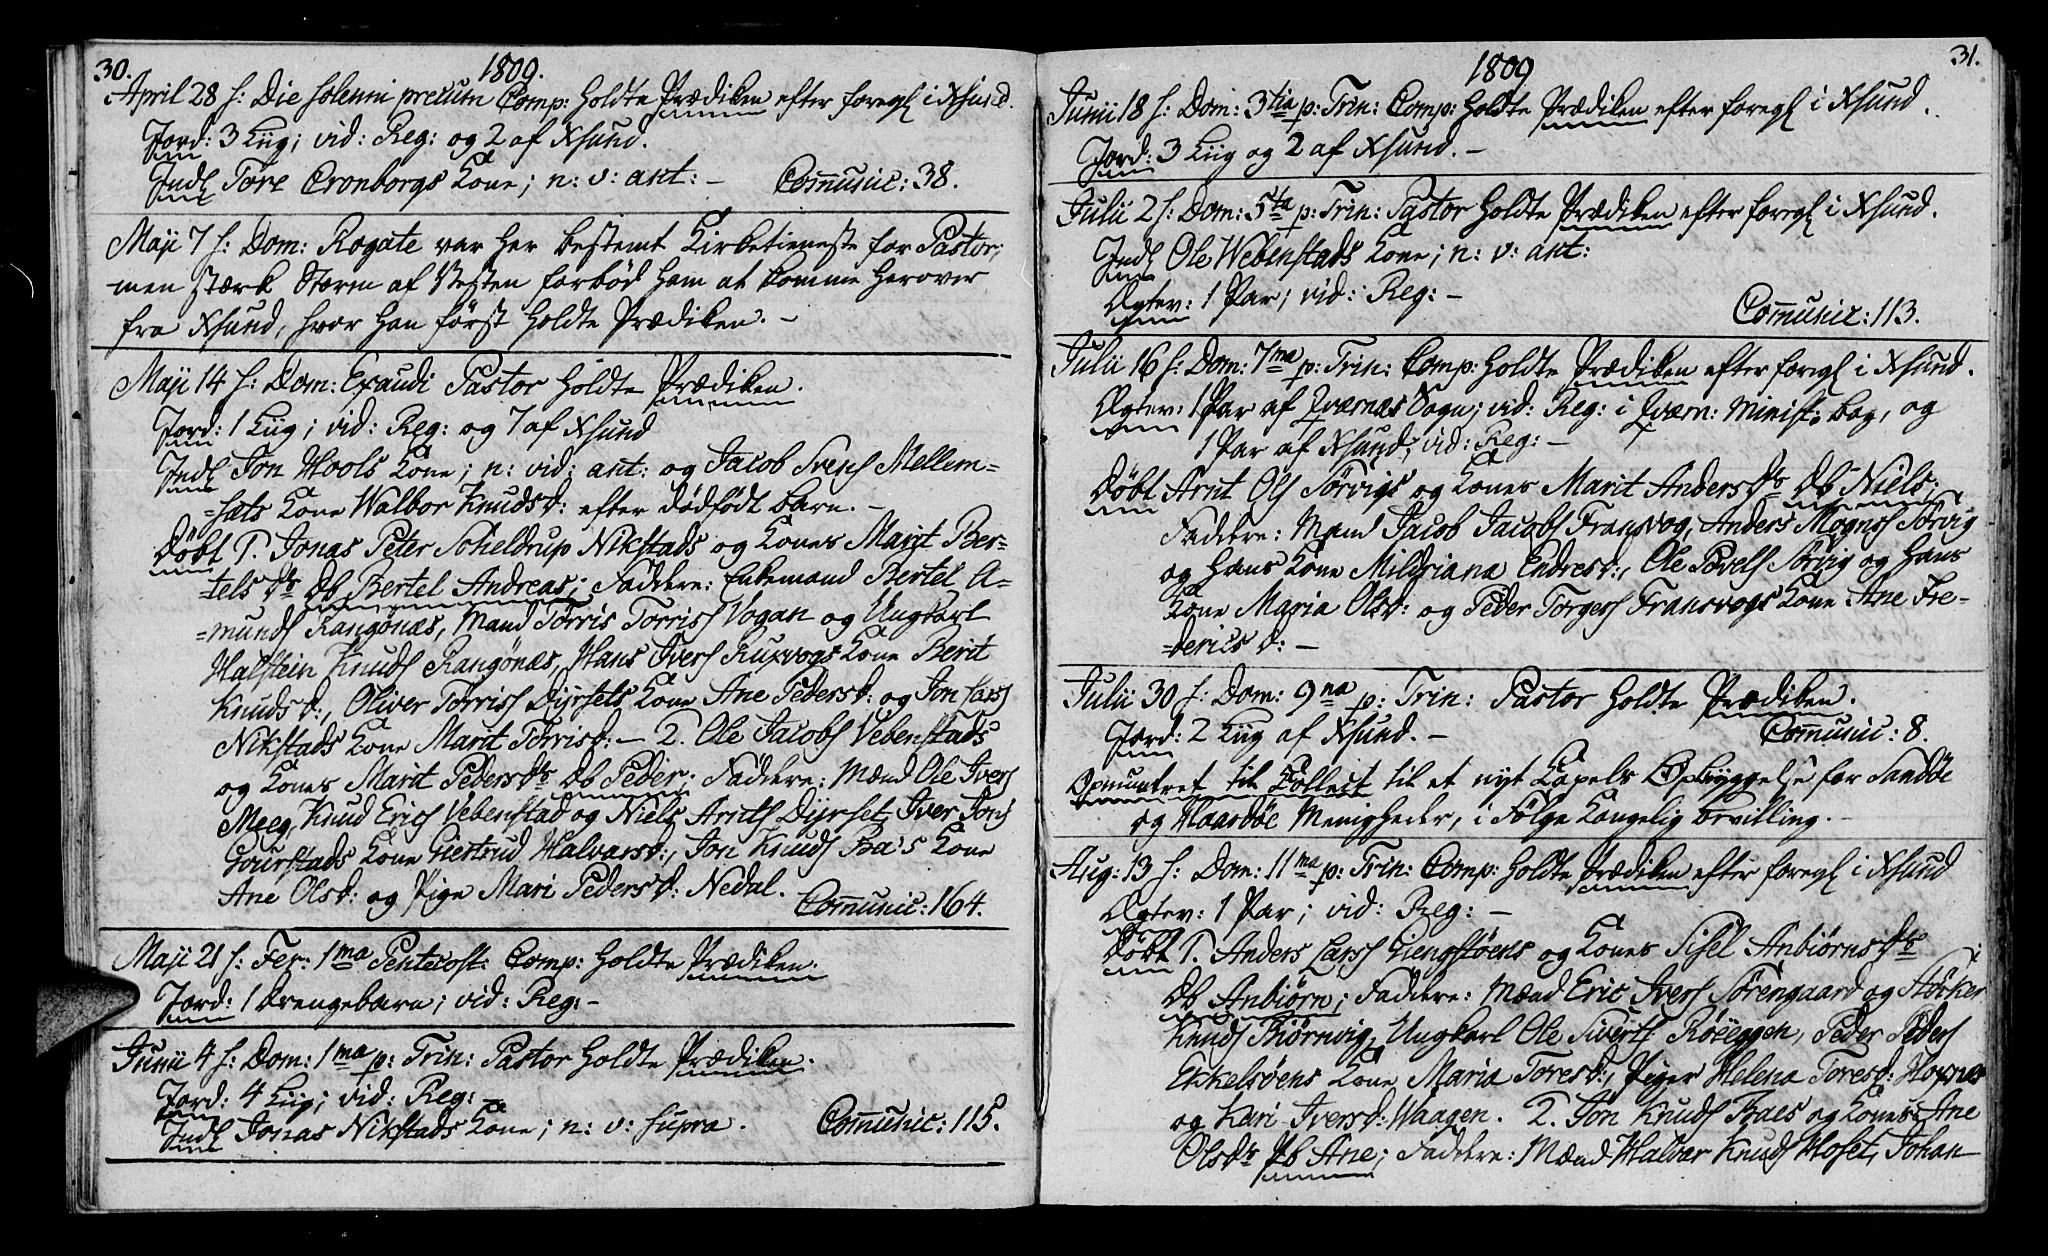 30. 1809.
April 28 h: Die solenni precum Comp: holdte Prædiken efter foregl i Xsund.
Jord: 3 Liig; vid: Reg: og 2 af Xsund.
Indl Tore Cronborgs Kone; n: v: ant: – Comunic: 38.
Maji 7 h: Dom: Rogate var her bestemt Kirketieneste for Pastor;
men stærk Storm af Vesten forbød ham at komme herover
fra Xsund, hvor han først holdte Prædiken. –
Maji 14 h: Dom: Exaudi Pastor holdte Prædiken.
Jord: 1 Liig; vid: Reg: og 7 af Xsund
Indl Jon Hools Kone; n: vid: ant: og Jacob Svens Mellem-
=sæts Kone Walbor Knudsd: efter dødfødt Barn. –
Døbt 1. Jonas Peter Scheldrup Nikstads og Kones Marit Ber-
=tels dr Db Bertel Andreas; Faddere: Enkemand Bertel A-
=munds Rangønæs, Mand Torris Torriss Vogan og Ungkarl
Halstein Knuds Rangønæs, Hans Ivers Kuxvogs Kone Berit
Knudsd:, Oliver Torriss Dyrsets Kone Ane Pedersd: og Jon Lars
Nikstads Kone Marit Torrisd: – 2. Ole Jacobs Vebenstads
og Kones Marit Peders dr Db Peder. Faddere: Mænd Ole Ivers
Meeg, Knud Erics Vebenstad og Niels Arnts Dyrset, Iver Jons
Gourstads Kone Giertrud Halvarsd:, Jon Knuds Bæ's Kone
Ane Olsd: og Pige Mari Pedersd: Nedal. Comunic: 164.
Maji 21 h: Fer: 1ma Pentecost: Comp: holdte Prædiken.
Jord: 1 Drengebarn; vid: Reg: –
Junii 4 h: Dom: 1ma p: Trin: Pastor holdte Prædiken.
Jord: 4 Liig; vid: Reg: –
Indl Jonas Nikstads Kone; n: v: supra. Comunic: 115.
1809 31.
Junii 18 h: Dom: 3tia p: Trin: Comp: holdte Prædiken efter foregl i Xsund.
Jord: 3 Liig og 2 af Xsund. –
Julii 2 h: Dom: 5ta p: Trin: Pastor holdte Prædiken efter foregl i Xsund.
Indl Ole Webenstads Kone; n: v: ant:
Ægtev: 1 Par; vid: Reg: –
Comunic: 113.
Julii 16 h: Dom: 7ma p: Trin: Comp: holdte Prædiken efter foregl i Xsund.
Ægtev: 1 Par af Qværnæs Sogn; vid: Reg: i Qværn: Minist: Bog, og
1 Par af Xsund; vid: Reg: –
Døbt Arnt Ols Sørvigs og Kones Marit Anders dr Db Niels;
Faddere: Mænd Jacob Jacobs Fransvog, Anders Mogns Sørvig
og hans Kone Mildriana Endresd:, Ole Povels Sørvig og hans
Kone Maria Olsd: og Peder Torgers Fransvogs Kone Ane Fre-
=derics d: –
Julii 30 h: Dom: 9na p: Trin: Pastor holdte Prædiken.
Jord: 2 Liig af Xsund. – Comunic: 8.
Opmuntret til Collect til et nyt Capels Opbyggelse for Sandöe
og Haasöe Menigheder, i Følge Kongelig Bevilling. –
Aug: 13 h: Dom: 11ma p: Trin: Comp: holdte Prædiken efter foregl i Xsund
Ægtev: 1 Par; vid: Reg: –
Døbt 1. Anders Lars Giengstøens og Kones Sisel Anbiørns dr
Db Anbiørn; Faddere: Mænd Eric Ivers Sörengaard og Störker
Knuds Biørnvig, Ungkarl Ole Siverts Røeggen, Peder Peders
Ekkelsøens Kone Maria Toresd:, Piger Helena Toresd: Hoxnæs
og Kari Iversd: Waagen. 2. Jon Knuds Baes og Kones Ane
Ols dr Pb Ane; Faddere: Mænd Halvar Knuds Hoset, Johan